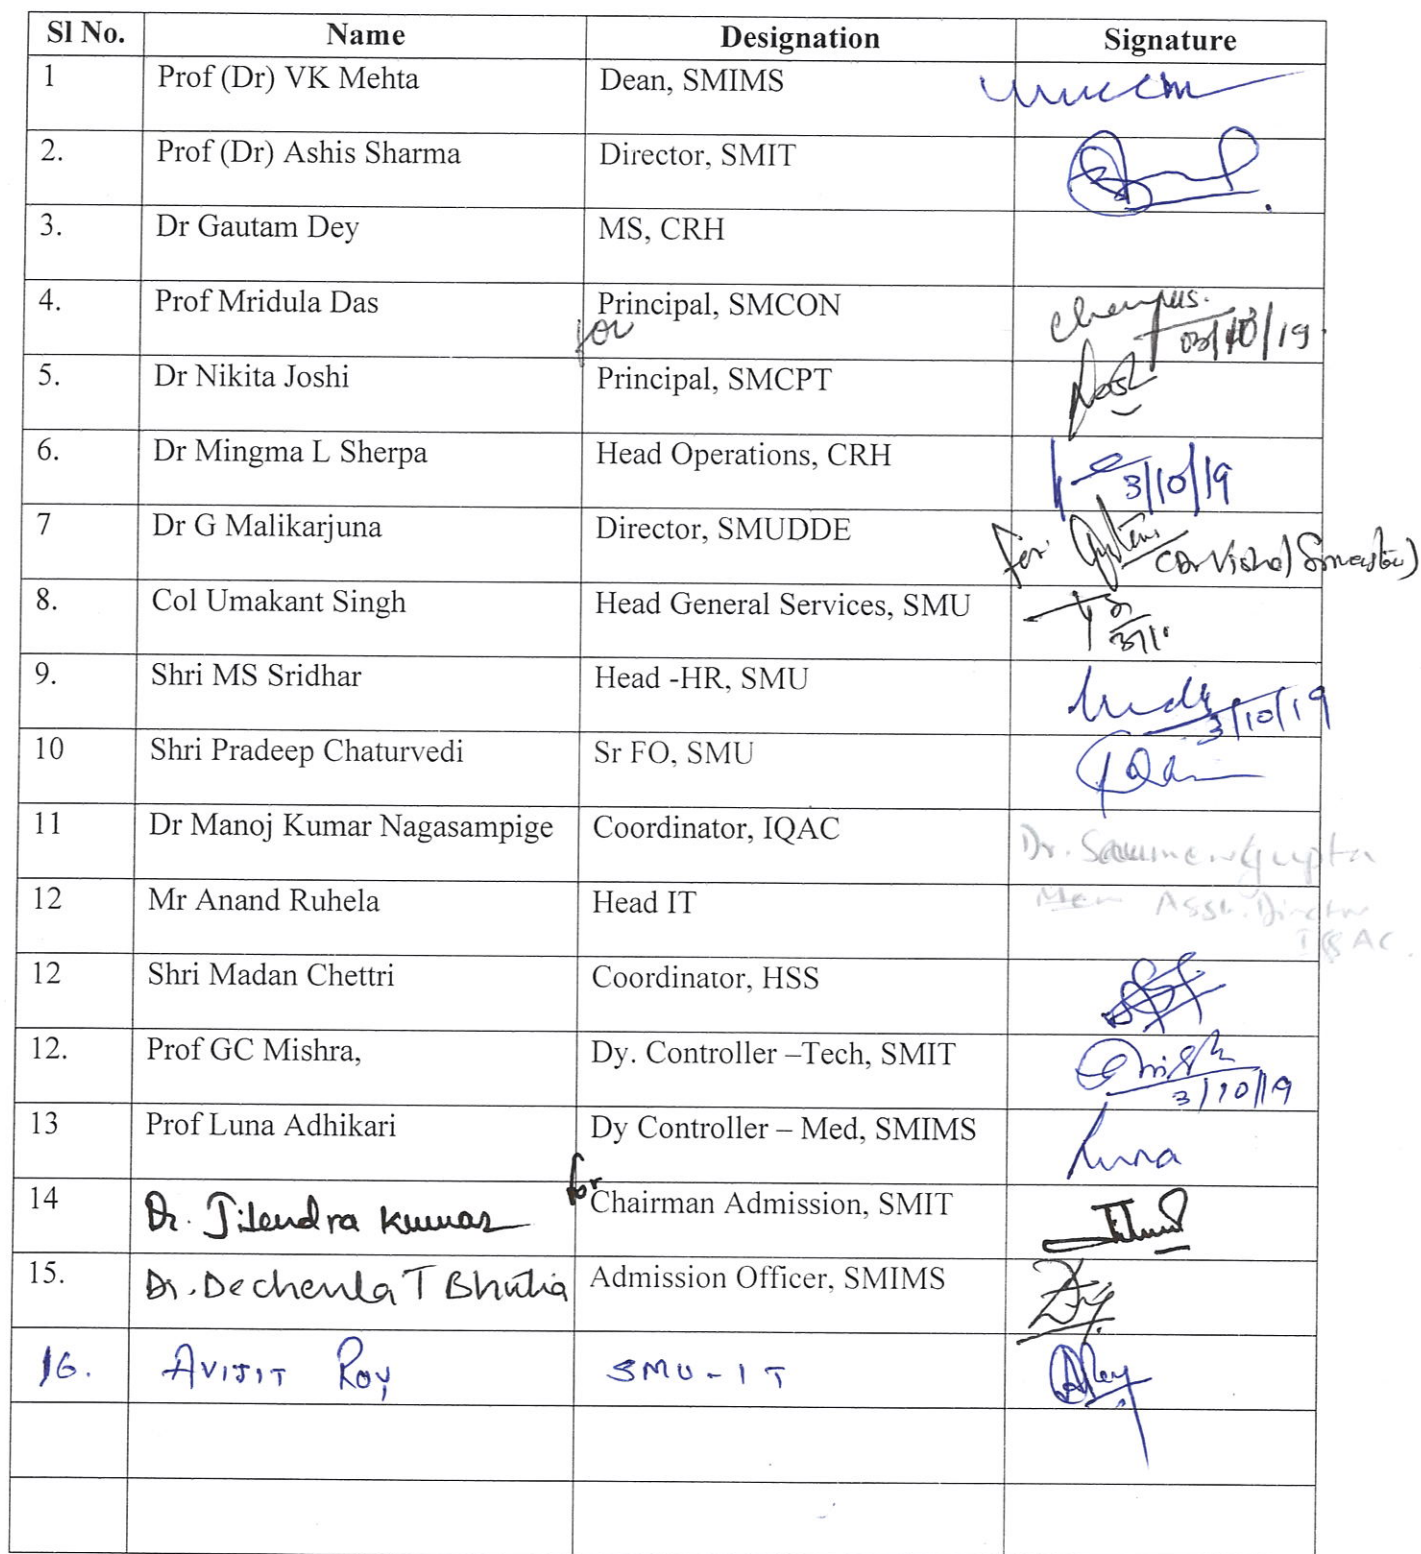 Sl No. Name Designation Signature
1 Prof (Dr) VK Mehta Dean, SMIMS
2. Prof (Dr) Ashis Sharma Director, SMIT
3. Dr Gautam Dey MS, CRH
4. Prof Mridula Das Principal, SMCON
for 03/10/19
5. Dr Nikita Joshi Principal, SMCPT
6. Dr Mingma L Sherpa Head Operations, CRH 3/10/19
7 Dr G Malikarjuna Director, SMUDDE for
8. Col Umakant Singh Head General Services, SMU
9. Shri MS Sridhar Head -HR, SMU 3/10/19
10 Shri Pradeep Chaturvedi Sr FO, SMU
11 Dr Manoj Kumar Nagasampige Coordinator, IQAC Dr. Gupta
12 Mr Anand Ruhela Head IT Asst. Director
IQAC.
12 Shri Madan Chettri Coordinator, HSS
12. Prof GC Mishra, Dy. Controller –Tech, SMIT 3/10/19
13 Prof Luna Adhikari Dy Controller – Med, SMIMS Luna
for
14 Dr. Jitendra Kumar Chairman Admission, SMIT
15. Dr. Dechenla T Bhutia Admission Officer, SMIMS
16. AVIJIT ROY SMU-IT